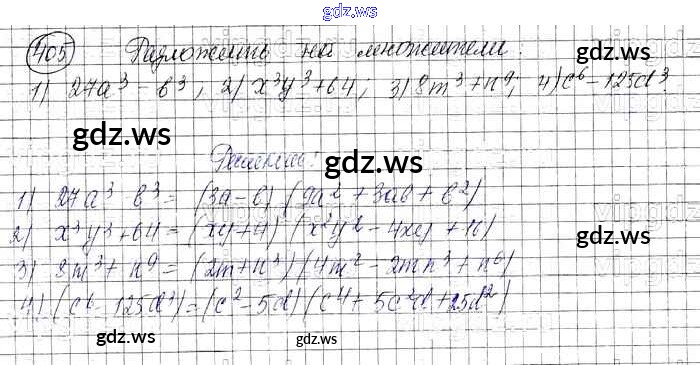 gdz.ws
405 Разложить на множители: gdz.ws
1) 27a³ - b³, 2) x³y³+64, 3) 8m³+n⁹, 4) c⁶-125d³
gdz.ws
gdz.ws
Решение:
1) 27a³ b³ = (3a-b) (9a² + 3ab + b²)
2) x³y³+64 = (xy+4) (x²y² - 4xy + 16) gdz.ws
3) 8m³+n⁹ = (2m+n³) (4m² - 2mn³ + n⁶)
4) (c⁶ - 125d³) = (c² - 5d) (c⁴ + 5c²d + 25d²)
gdz.ws
gdz.ws